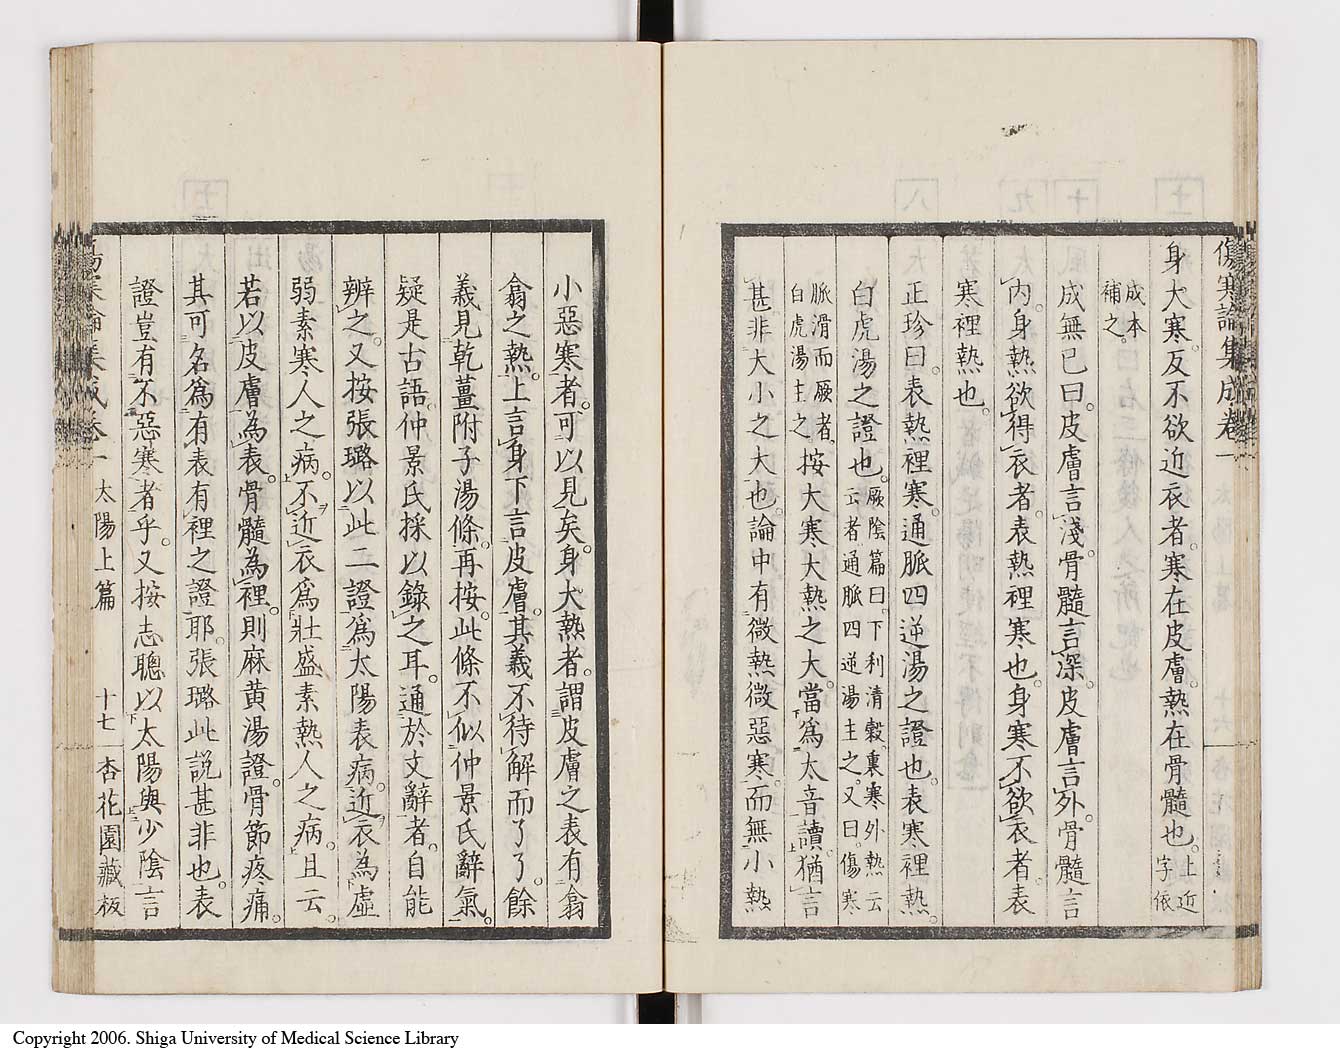 傷寒論集成卷一
身大寒。反不欲近衣者。寒在皮膚。熱在骨髓也。止近字依
成本補之。
成無已曰。皮膚言淺。骨髓言深。皮膚言外。骨髓言
內。身熱欲得衣者。表熱裡寒也。身寒不欲衣者。表
寒裡熱也。
正珍曰。表熱裡寒。通脈四逆湯之證也。表寒裡熱。
白虎湯之證也。厥陰篇曰。下利清穀。裏寒外熱云云者。通脈四逆湯主之。又曰。傷寒
脈滑而厥者。白虎湯主之按大寒大熱之大。當爲太音。讀猶言
甚。非大小之大也。論中有微熱微惡寒。而無小熱
小惡寒者。可以見矣。身大熱者。謂皮膚之表有翕
翕之熱。上言身下言皮膚。其義不待解而了了。餘
義見乾薑附子湯條。再按。此條不似仲景氏辭氣。
疑是古語。仲景氏採以錄之耳。通於文辭者。自能
辨之。又按張璐以此二證爲太陽表病。近衣為虛
弱素寒人之病。不近衣爲壯盛素熱人之病。且云。
若以皮膚為表。骨髓為裡。則麻黃湯證。骨節疼痛。
其可名爲有表有裡之證耶。張璐此説甚非也。表
證豈有不惡寒者乎。又按志聰以太陽與少陰言
太陽上篇 十七 杏花園藏板
Copyright 2006. Shiga University of Medical Science Library